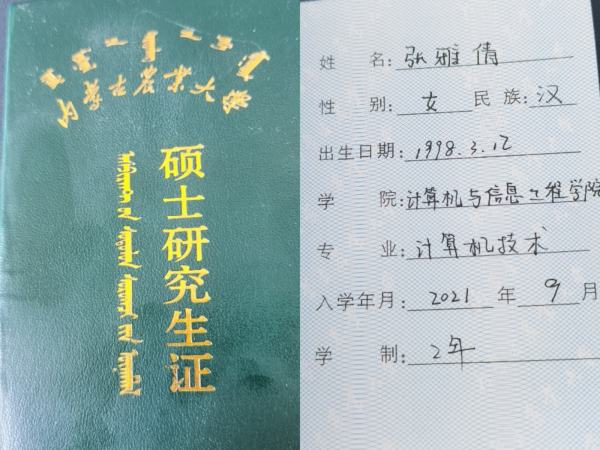 内蒙古农业大学
硕士研究生证
姓 名: 张雅倩
性 别: 女 民族: 汉
出生日期: 1998.3.12
学 院: 计算机与信息工程学院
专 业: 计算机技术
入学年月: 2021 年 9 月
学 制: 2年